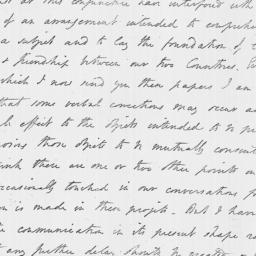 at this conjuncture have interfered with
of an arrangement intended to comprehen
a subject and to lay the foundation of
& friendship between our two Countries.
which I now send you these papers I am
that some verbal corrections may occur
effect to the objects intended to be
those objects to be mutually
there are one or two other points
occasionally touched in our conversations
is made in these projets. But I have
communication in its present shape
any further delay should be